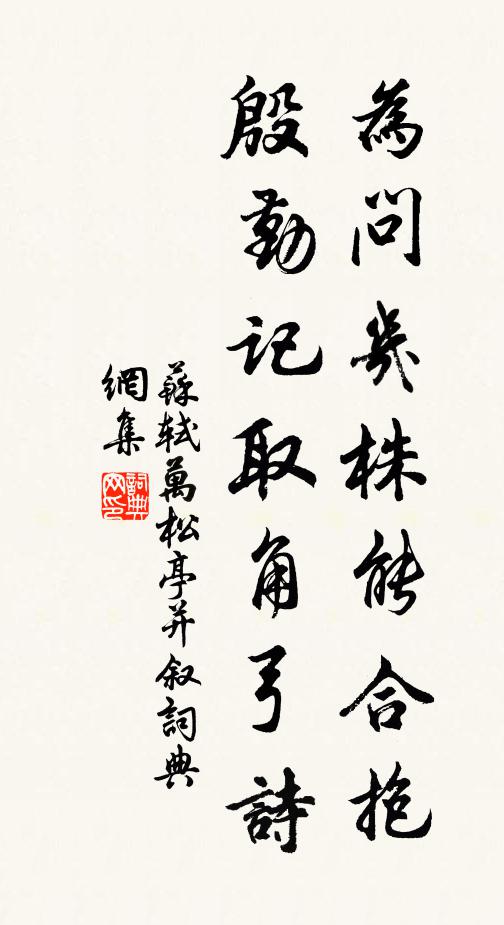 為問幾株能合抱
殷勤記取角弓詩
蘇軾萬松亭并叙詞典
網集
詞典网印